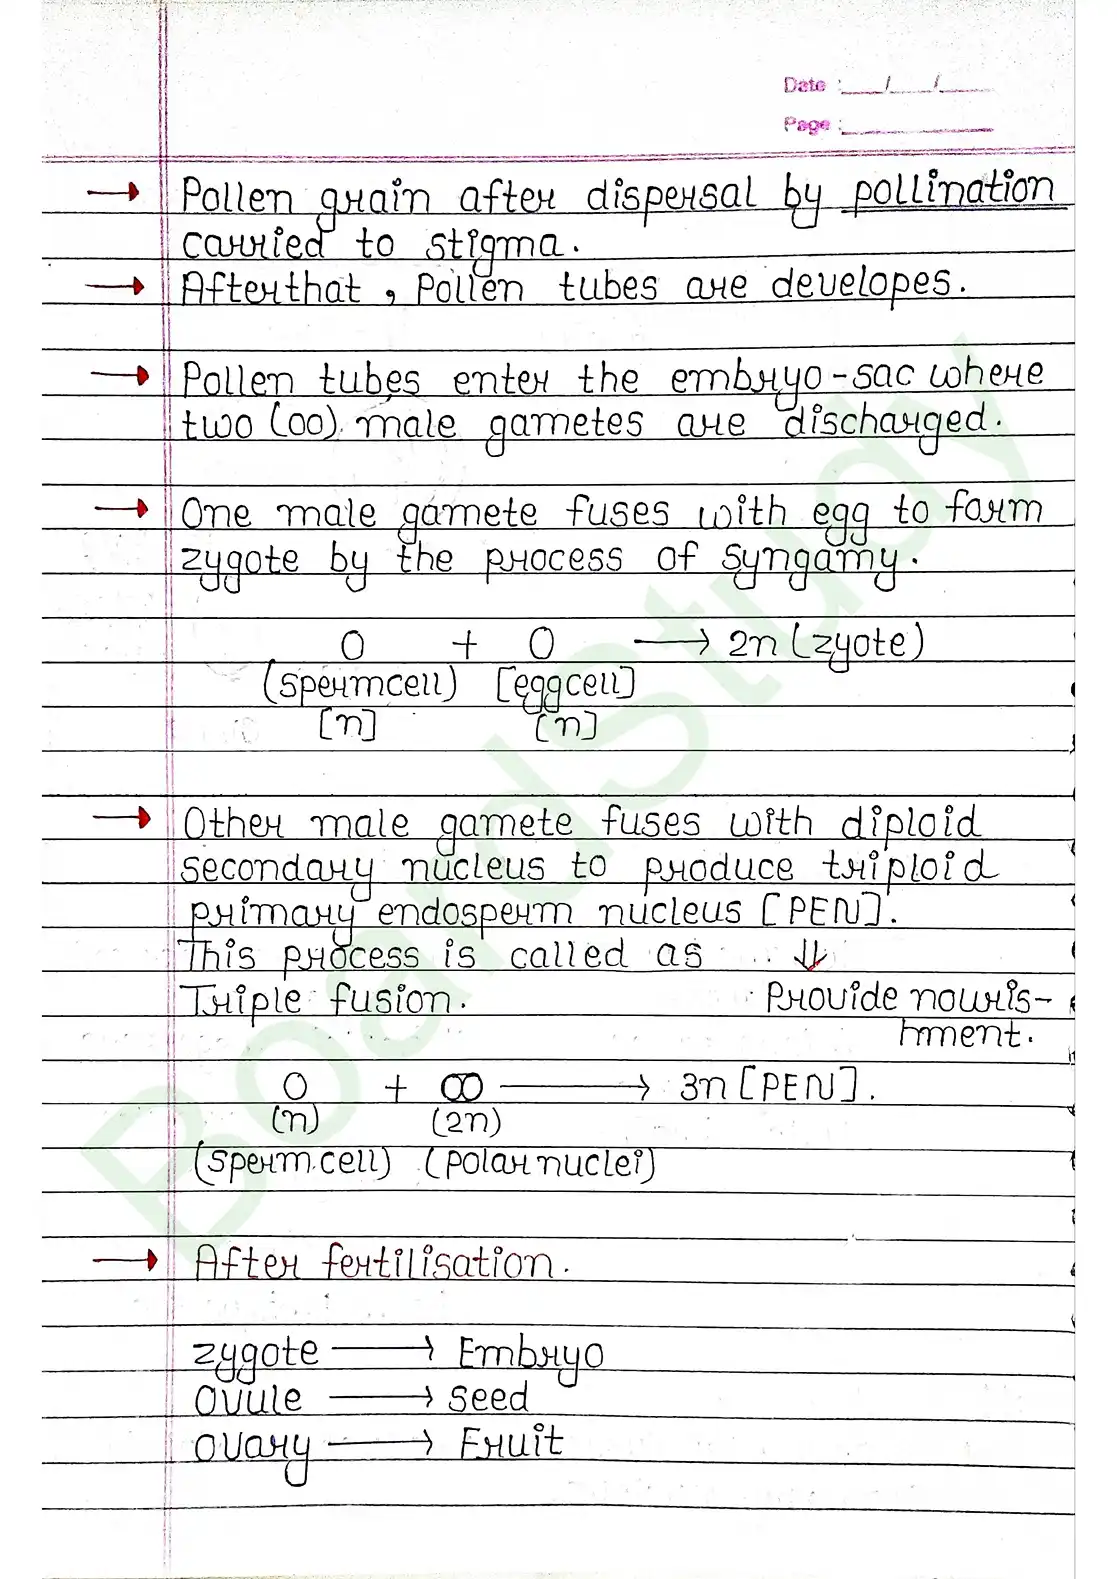 Date :___/___/___
Page :___________
→ Pollen grain after dispersal by pollination
carried to stigma.
→ Afterthat, Pollen tubes are developes.
→ Pollen tubes enter the embryo-sac where
two (oo). male gametes are discharged.
→ One male gamete fuses with egg to form
zygote by the process of syngamy.
O + O → 2n (zyote)
(spermcell) [eggcell]
[n] [n]
→ Other male gamete fuses with diploid
secondary nucleus to produce triploid
primary endosperm nucleus [PEN].
This process is called as ⇓
Triple fusion. Provide nouris-
hment.
O + OO → 3n [PEN].
(n) (2n)
(sperm.cell) (polar nuclei)
→ After fertilisation.
zygote → Embryo
ovule → seed
ovary → Fruit
BoardStudy